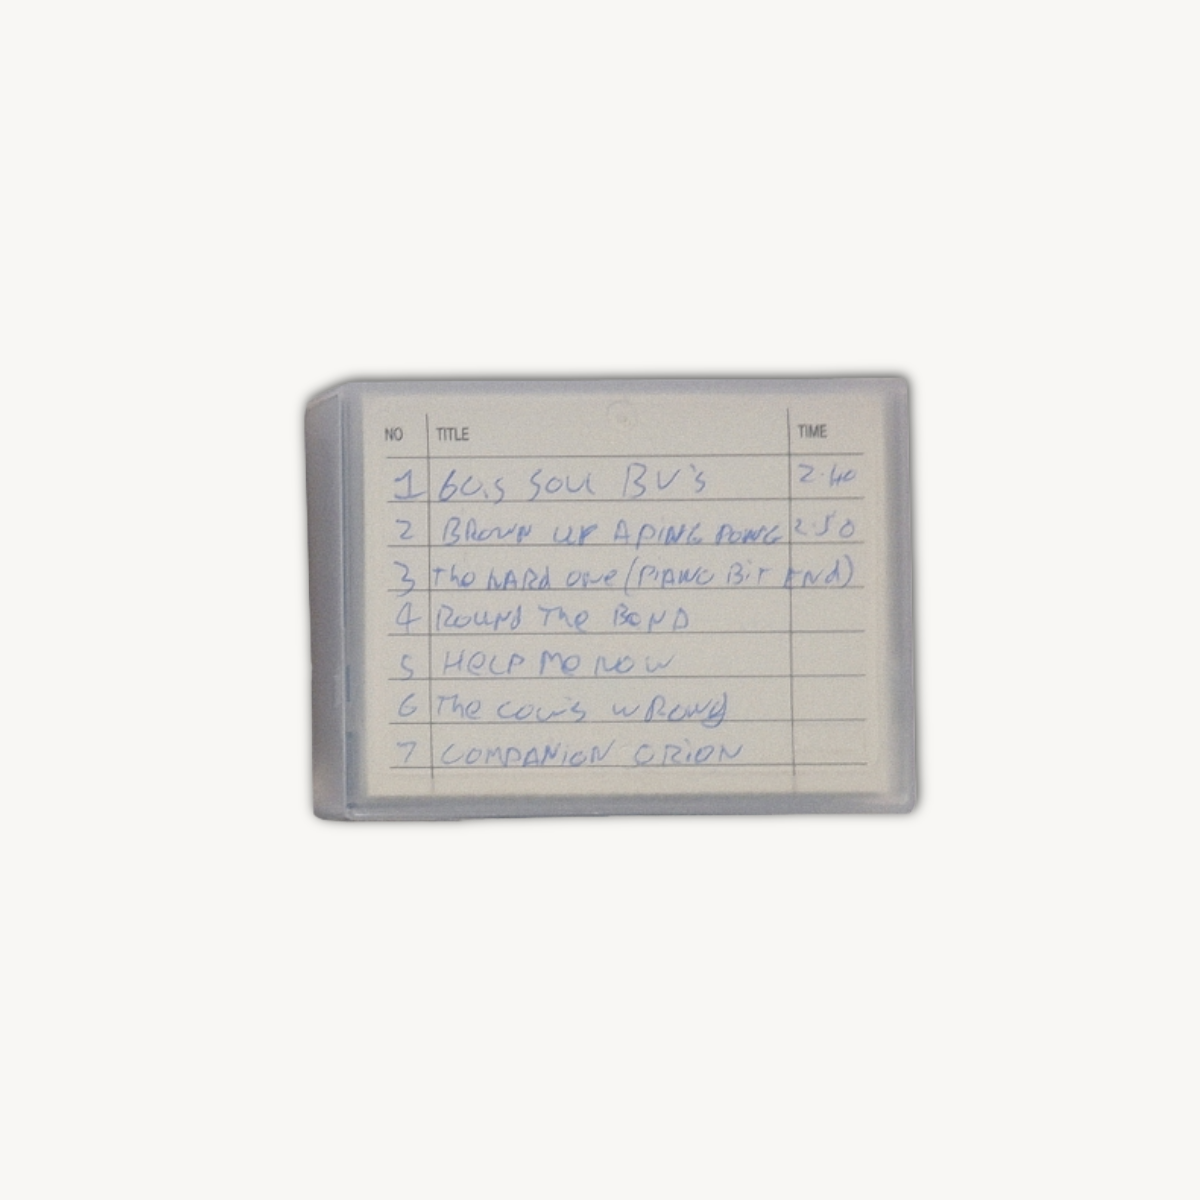 NO TITLE TIME
1 60,s Soul BV's 2.40
2 BROWN UP A PING PONG 2.50
3 The hARd one (PiANO BiT ENd)
4 ROUNd The BeND
5 HELP Me NOW
6 The wRONg
7 COMPANiON ORiON